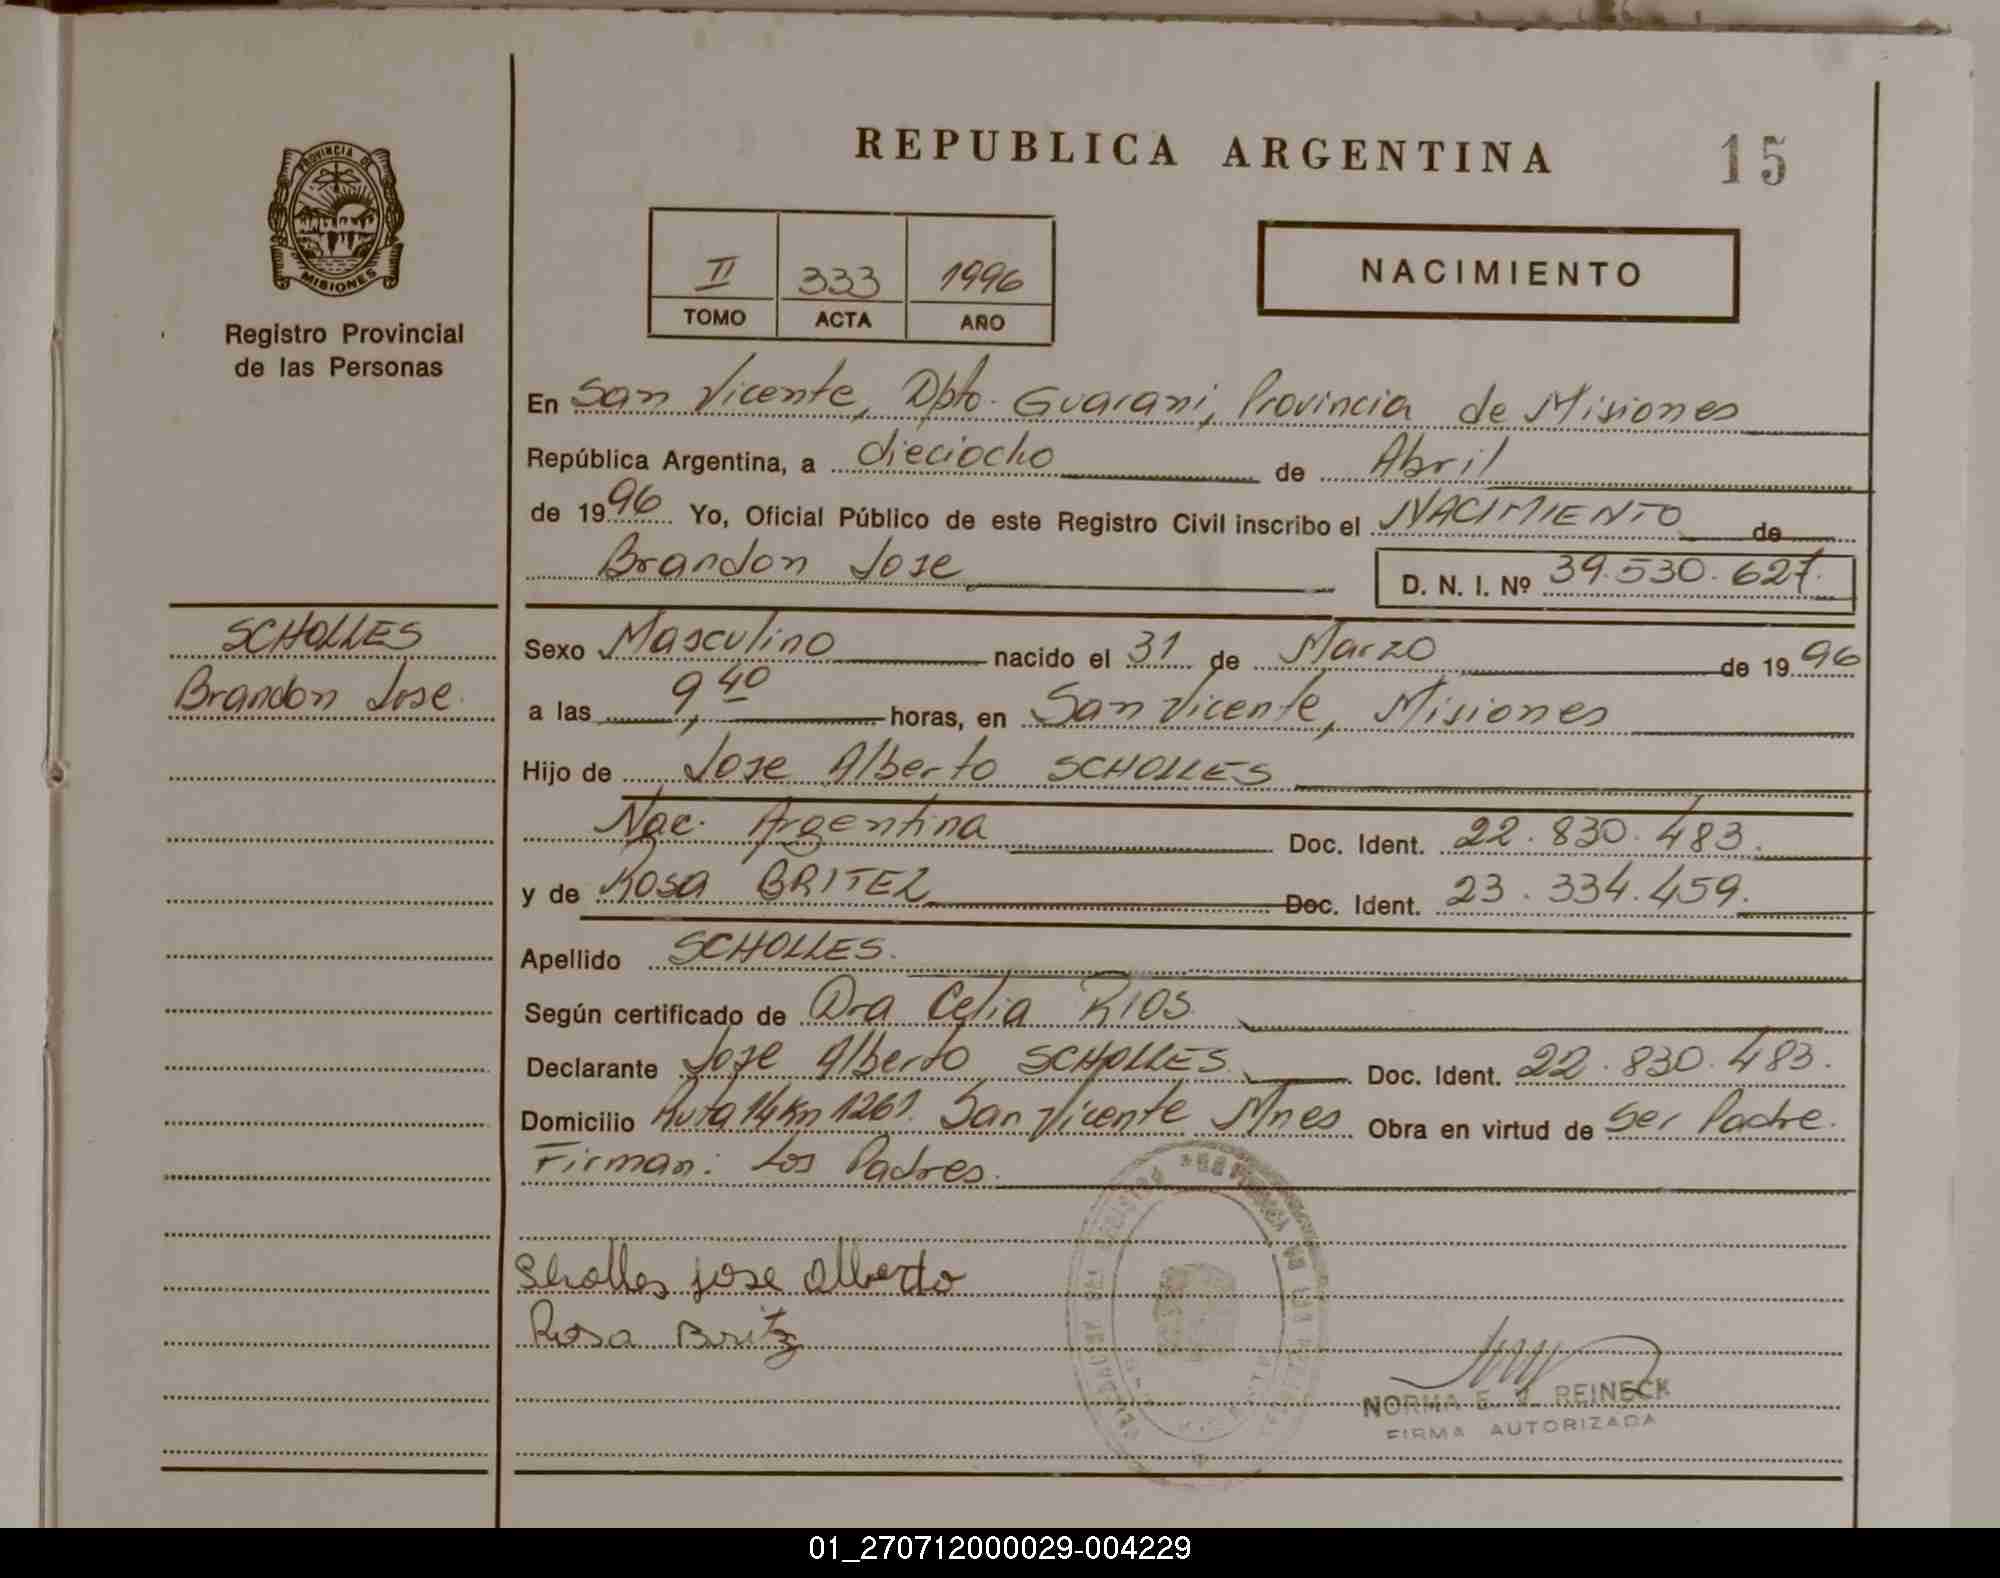 REPUBLICA ARGENTINA
15
PROVINCIA DE
MISIONES
Registro Provincial
de las Personas
II 333 1996
TOMO ACTA AÑO
NACIMIENTO
En San Vicente, Dpto. Guarani, Provincia de Misiones
República Argentina, a dieciocho de Abril
de 1996 Yo, Oficial Público de este Registro Civil inscribo el NACIMIENTO de
Brandon Jose
D. N. I. Nº 39.530.627.
SCHOLLES
Brandon Jose.
Sexo Masculino nacido el 31 de Marzo de 1996
a las 9,40 horas, en San Vicente, Misiones
Hijo de Jose Alberto SCHOLLES
Nac. Argentina Doc. Ident. 22.830.483.
y de Rosa BRITEZ Doc. Ident. 23.334.459.
Apellido SCHOLLES.
Según certificado de Dra Celia RIOS
Declarante Jose Alberto SCHOLLES Doc. Ident. 22.830.483.
Domicilio Ruta 14 Km 1261. San Vicente Mnes Obra en virtud de Ser Padre.
Firman: Los Padres.
Scholles jose Alberto
Rosa Britz
NORMA E. V. REINECK
FIRMA AUTORIZADA
01_270712000029-004229